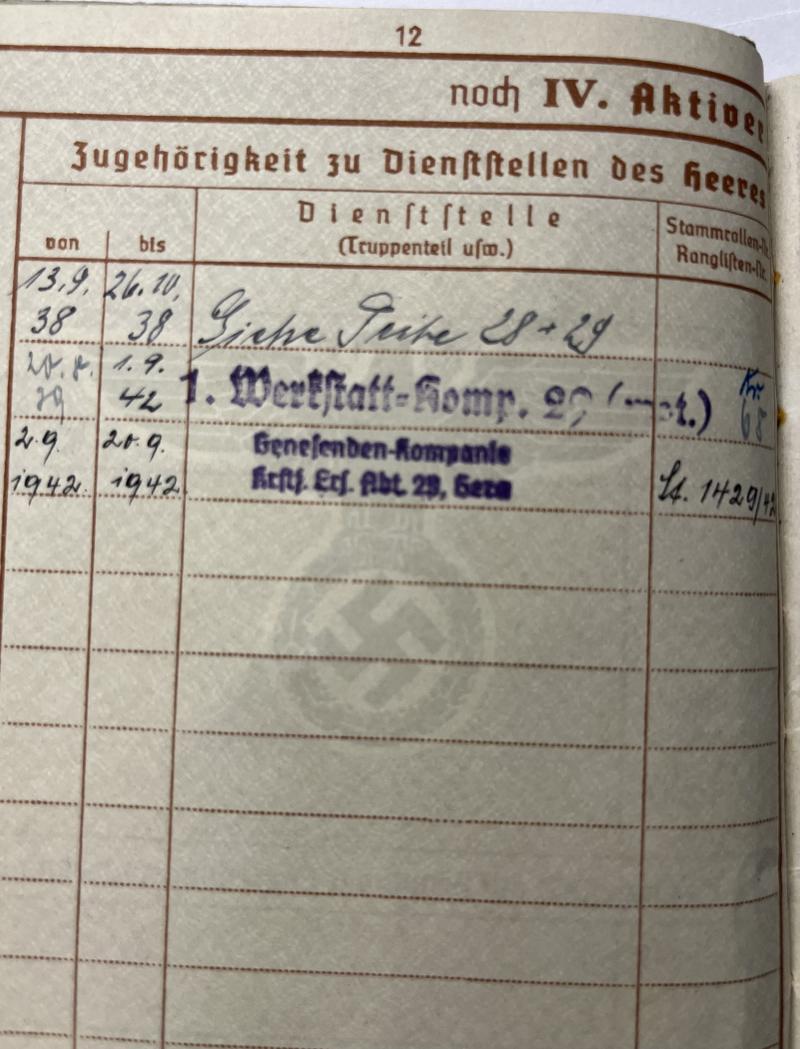 12
noch IV. Aktiver
Zugehörigkeit zu Dienststellen des Heeres
von
bis
Dienststelle
(Truppenteil usw.)
Stammrollen-Nr.
Ranglisten-Nr.
13.9. 26.10.
38 38 Siehe Seite 28 + 29
1.9.
39 42 1. Werkstatt-Komp. 29 (mot.) 68
2.9. 20.9. Genesenden-Kompanie
1942. 1942 Krftf. Ers. Abt. 29, Gera 1429/42